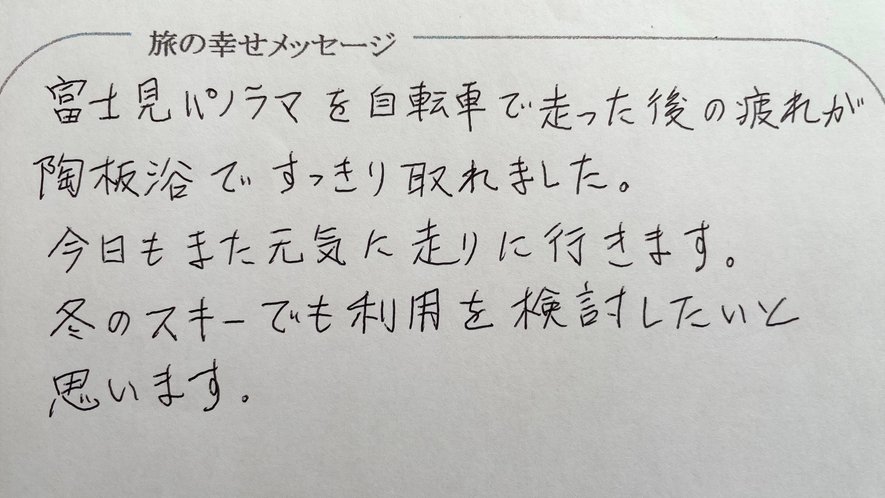 旅の幸せメッセージ
富士見パノラマを自転車で走った後の疲れが
陶板浴ですっきり取れました。
今日もまた元気に走りに行きます。
冬のスキーでも利用を検討したいと
思います。